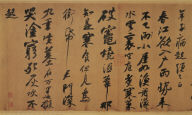 年子病起頭已白
春江欲入户雨勢来
不已小屋如漁舟濛濛
水雲裏空庖煮寒菜
破竈燒濕葦那
知是寒食但見烏
銜帋君門深
九重墳墓在万里也擬
哭塗窮死灰吹不
起